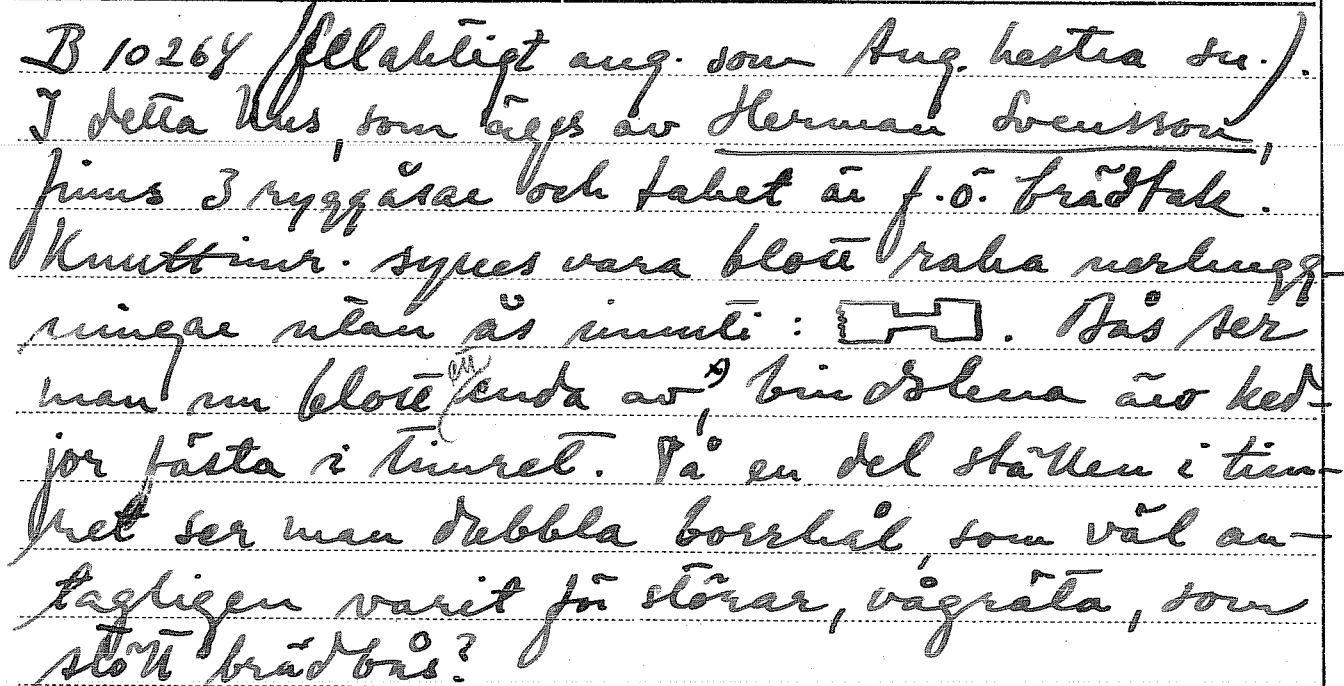 B 10264 (fellaktigt ang. som Aug. hestra su.).
I detta hus, som äges av Herman Svensson,
finns 3 ryggåsar och taket är f.ö. brädtak.
Knuttimr. synes vara blott raka nerhugg-
ningar utan ås inuti: . Bås ser
man nu blott en enda av,x) bindslena äro ked-
jor fästa i timret. På en del ställen i tim-
ret ser man dubbla borrhål, som väl an-
tagligen varit för störar, vågräta, som
stött brädbås?